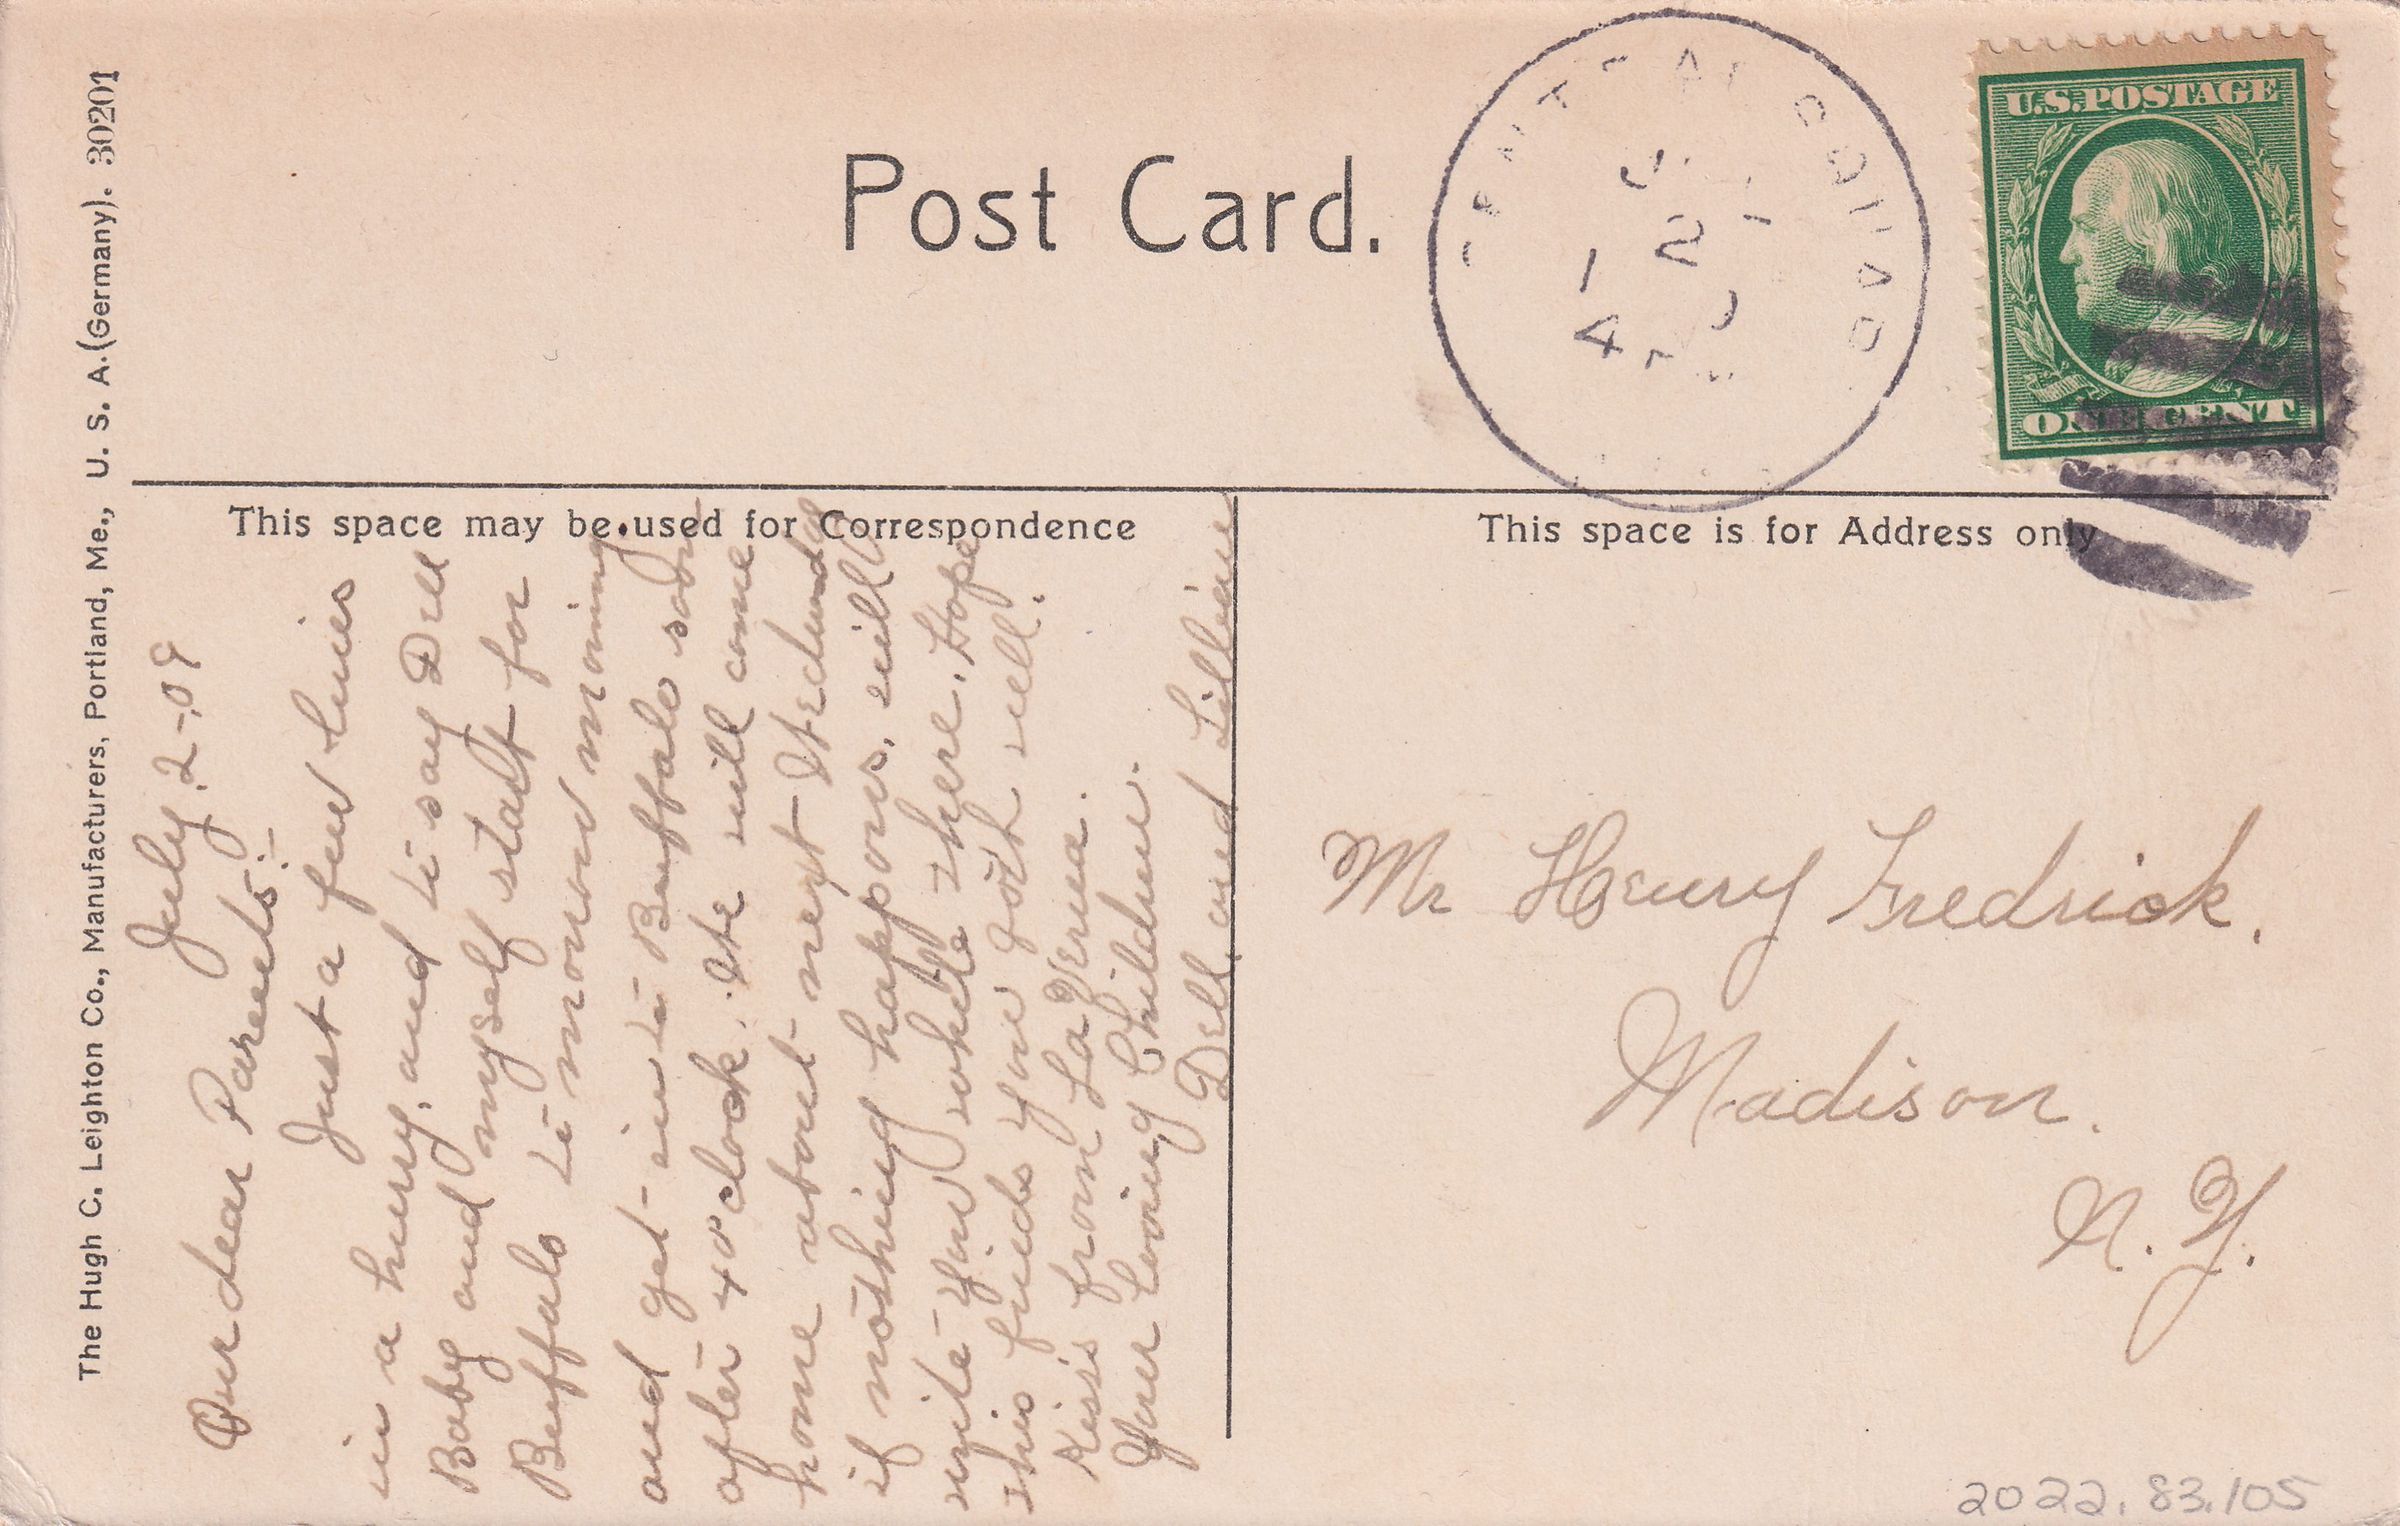 The Hugh C. Leighton Co., Manufacturers, Portland, Me., U. S. A. (Germany). 30201
Post Card.
U.S. POSTAGE
ONE CENT
JUL
2
This space may be used for Correspondence
This space is for Address only
July. 2-09
Our dear Parents:-
Just a few lines
in a hurry, and to say Dell
Baby and myself start for
Buffalo to morrow morning
and get in to Buffalo soon
after 4 o'clock. We will come
home about next Wednesday
if nothing happens. will
write you while there. Hope
this finds you both well.
Kiss from LaVerna.
Your loving Children.
Dell. and Lillian
Mr Henry Fredrick.
Madison.
N. Y.
2022.83.105